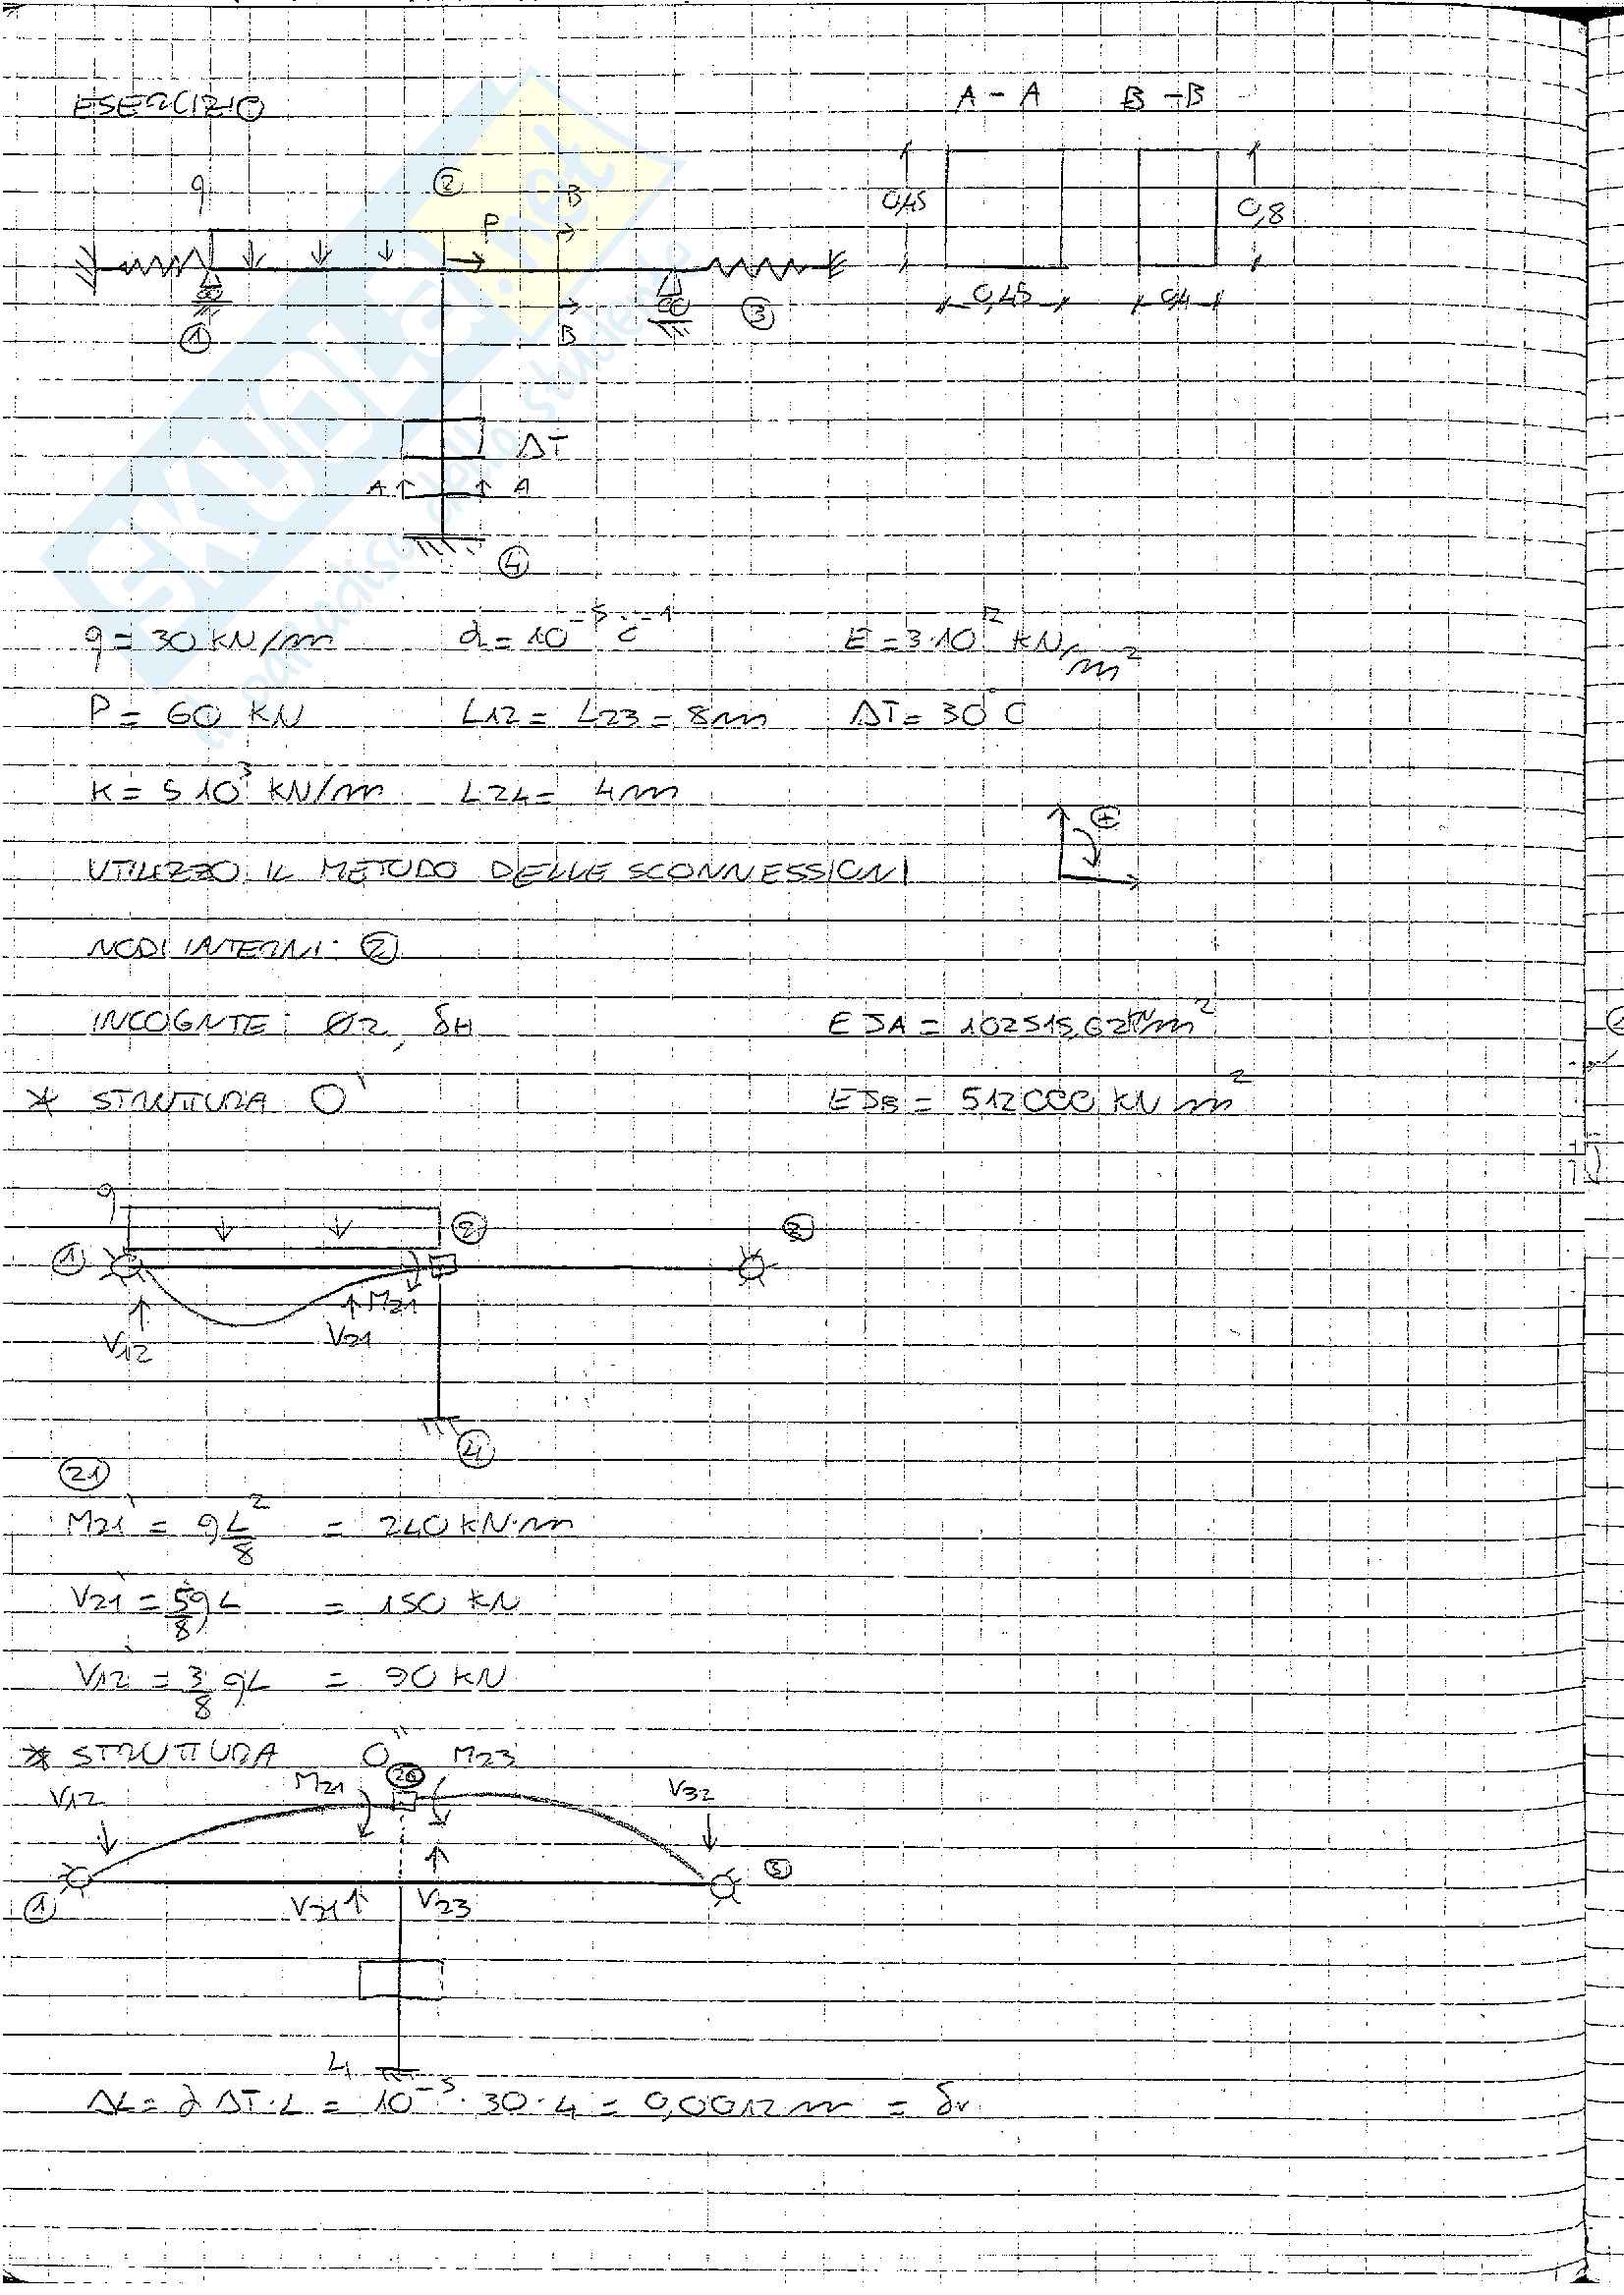 ESERCIZIO
A-A B-B
q ② P B
0,45 0,8
0,45 0,4
① B ③
ΔT
A A
④
q = 30 KN/m α = 10^-5 °C^-1 E = 3·10^7 KN/m²
P = 60 KN L12 = L23 = 8m ΔT = 30°C
K = 5 10³ KN/m L24 = 4m
⊕
UTILIZZO IL METODO DELLE SCONNESSIONI
NODI INTERNI: ②
INCOGNITE: Ø2, δH EJA = 102515,62 KNm²
* STRUTTURA O' EJB = 512000 KN m²
q
① ② ③
M21
V12 V21
④
㉑
M21' = qL²/8 = 240 KN·m
V21' = 5/8 qL = 150 KN
V12' = 3/8 qL = 90 KN
* STRUTTURA O'' M23
V12 M21 V32
① V21 V23 ③
4
ΔL = α ΔT·L = 10^-5 · 30 · 4 = 0,0012 m = δv
SKUOLA.net
il paradiso dello studente